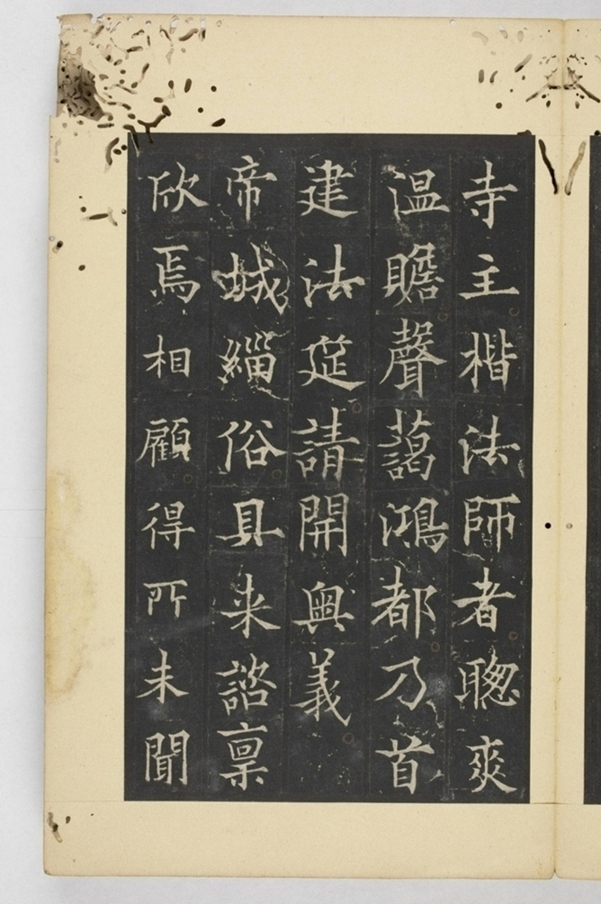 寺主楷法師者聦爽
温瞻聲藹鴻都乃首
建法莚請開奥義
帝城緇俗具来諮禀
欣焉相顧得所未聞